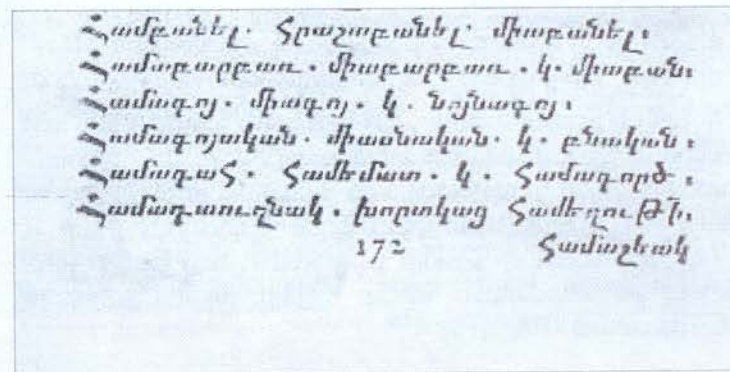 Համբանել․ Հրաշաբանել․ միաբանել։
Համաբարբառ․ միաբարբառ․ կ․ միաբան։
Համագոյ․ միագոյ․ կ․ նոյնագոյ։
Համագոյական․ միասնական․ կ․ բնական։
Համագահ․ Համեմատ․ կ․ Համագործ։
Համադաուղնակ․ խորտկաց Համեղութի։
172 Համաշեակ